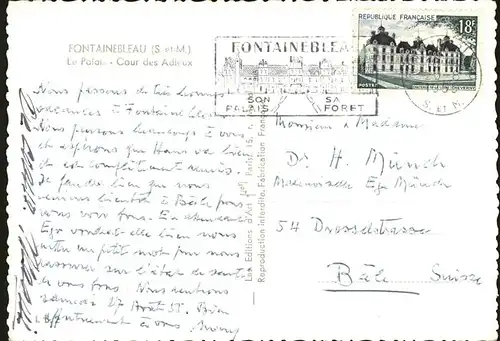 FONTAINEBLEAU (S.-et-M.)
Le Palais - Cour des Adieux
Nous passons de très bonnes
vacances à Fontainebleau.
Nous pensons beaucoup à vous
et espérons que Hans va bien
et est complètement remis.
Je pense bien que nous
venons bientôt à Bâle pour
vous voir tous. En attendant
Ega voudrait-elle bien nous
mettre un petit mot pour nous
rassurer sur l'état de santé
de vous tous. Nous rentrons
samedi 27 Août 55. Bien
affectueusement à vous
Les Editions d'Art
Reproduction Interdite. Fabrication Française
FONTAINEBLEAU
SON
PALAIS
SA
FORET
REPUBLIQUE FRANÇAISE
18F
POSTES
S. ET M.
Monsieur & Madame
Dr. H. Münch
Mademoiselle Ega Münch
54 Drosselstrasse
Bâle Suisse